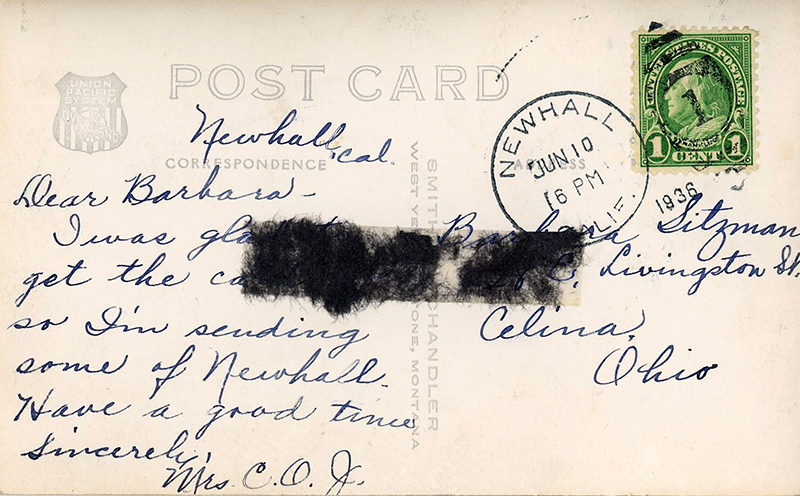 POST CARD
UNION
PACIFIC
SYSTEM
OVERLAND
CORRESPONDENCE
ADDRESS
SMITH CHANDLER
WEST YE ONE, MONTANA
NEWHALL
JUN 10
6 PM
CALIF.
1936
UNITED STATES POSTAGE
1 CENT 1
Newhall, Cal.
Dear Barbara –
I was glad
get the ca
so I'm sending
some of Newhall.
Have a good time
Sincerely,
Mrs. C. O. J.
Barbara Sitzman
E. Livingston St.
Celina,
Ohio